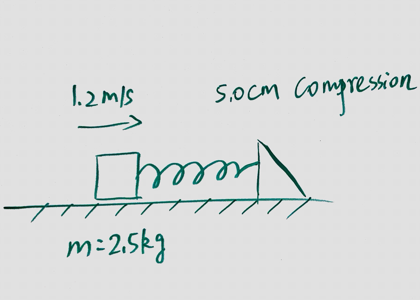 1.2m/s
5.0cm compression
m=2.5kg